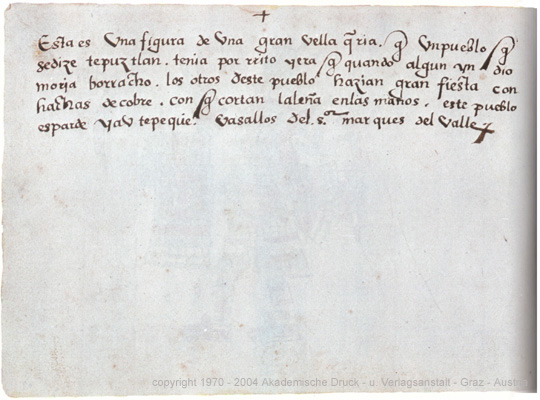 +
Esta es Una figura de Una gran vellaq̃ria. q̃ Un pueblo q̃
se dize tepuztlan. tenia por rrito yera q̃ quando algun yndio
moria borracho. los otros deste pueblo hazian gran fiesta con
hachas de cobre. con q̃ cortan la leña en las manos. este pueblo
es par de yautepeque. Vasallos del. s.ᵒʳ marques del valle
copyright 1970 - 2004 Akademische Druck - u. Verlagsanstalt - Graz - Austri